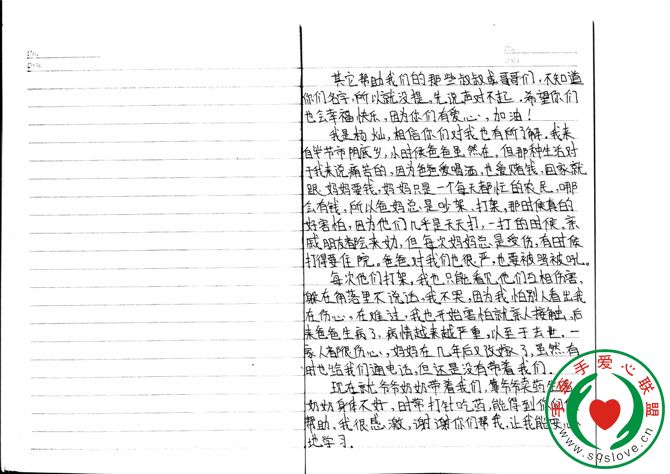 其它帮助我们的那些叔叔或哥哥们，不知道
你们名字，所以就没提，先说声对不起，希望你们
也会幸福快乐，因为你们有爱心，加油！
我是杨灿，相信你们对我也有所了解，我来
自毕节市阴底乡，小时候爸爸虽然在，但那种生活对
于我来说痛苦的，因为爸爸爱喝酒，也爱赌钱，回家就
跟妈妈要钱，妈妈只是一个每天都忙的农民，哪
会有钱，所以爸妈总是吵架、打架，那时候真的
好害怕，因为他们几乎是天天打，一打的时候，亲
戚朋友都会来劝，但每次妈妈总是受伤，有时候
打得要住院。爸爸对我们也很严，也要被骂被吼。
每次他们打架，我也只能看见他们互相伤害，
躲在角落里不说话，我不哭，因为我怕别人看出我
在伤心，在难过，我也开始害怕就亲人接触，后
来爸爸生病了，病情越来越严重，以至于去世，一
家人都很伤心，妈妈在几年后又改嫁了，虽然有
时也给我们通电话，但这是没有带着我们．
现在就爷爷奶奶带着我们，靠爷爷卖药
奶奶身体不好，时常打针吃药，能得到你们
帮助，我很感激，谢谢你们帮我，让我能
地学习．
手拉手爱心联盟
www.sqslove.cn